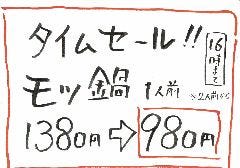 タイムセール!!
16時まで
モツ鍋 1人前
※2人前から
1380円⇨980円